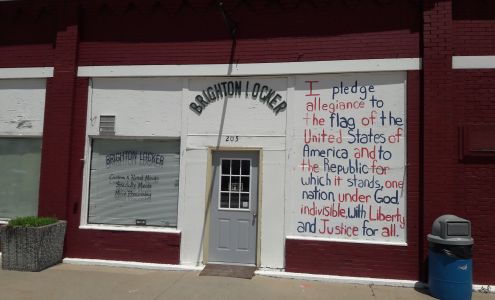 BRIGHTON LOCKER
205
BRIGHTON LOCKER
Custom & Retail Meats
Specialty Meats
Meat Processing
I pledge
allegiance to
the flag of the
United States of
America and to
the Republic for
which it stands, one
nation under God
indivisible, with Liberty
and Justice for all.